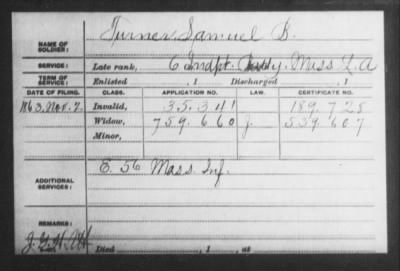 NAME OF SOLDIER: Turner, Samuel B.
SERVICE: Late rank, 6 Indpt. Baty. Mass L A
TERM OF SERVICE: Enlisted , 1 Discharged , 1
DATE OF FILING. CLASS. APPLICATION NO. LAW. CERTIFICATE NO.
1863, Nov. 7. Invalid, 35.341 189.728
Widow, 759.660 J. 539.607
Minor,
ADDITIONAL SERVICES: E. 56 Mass. Inf.
REMARKS:
Died , 1 , at